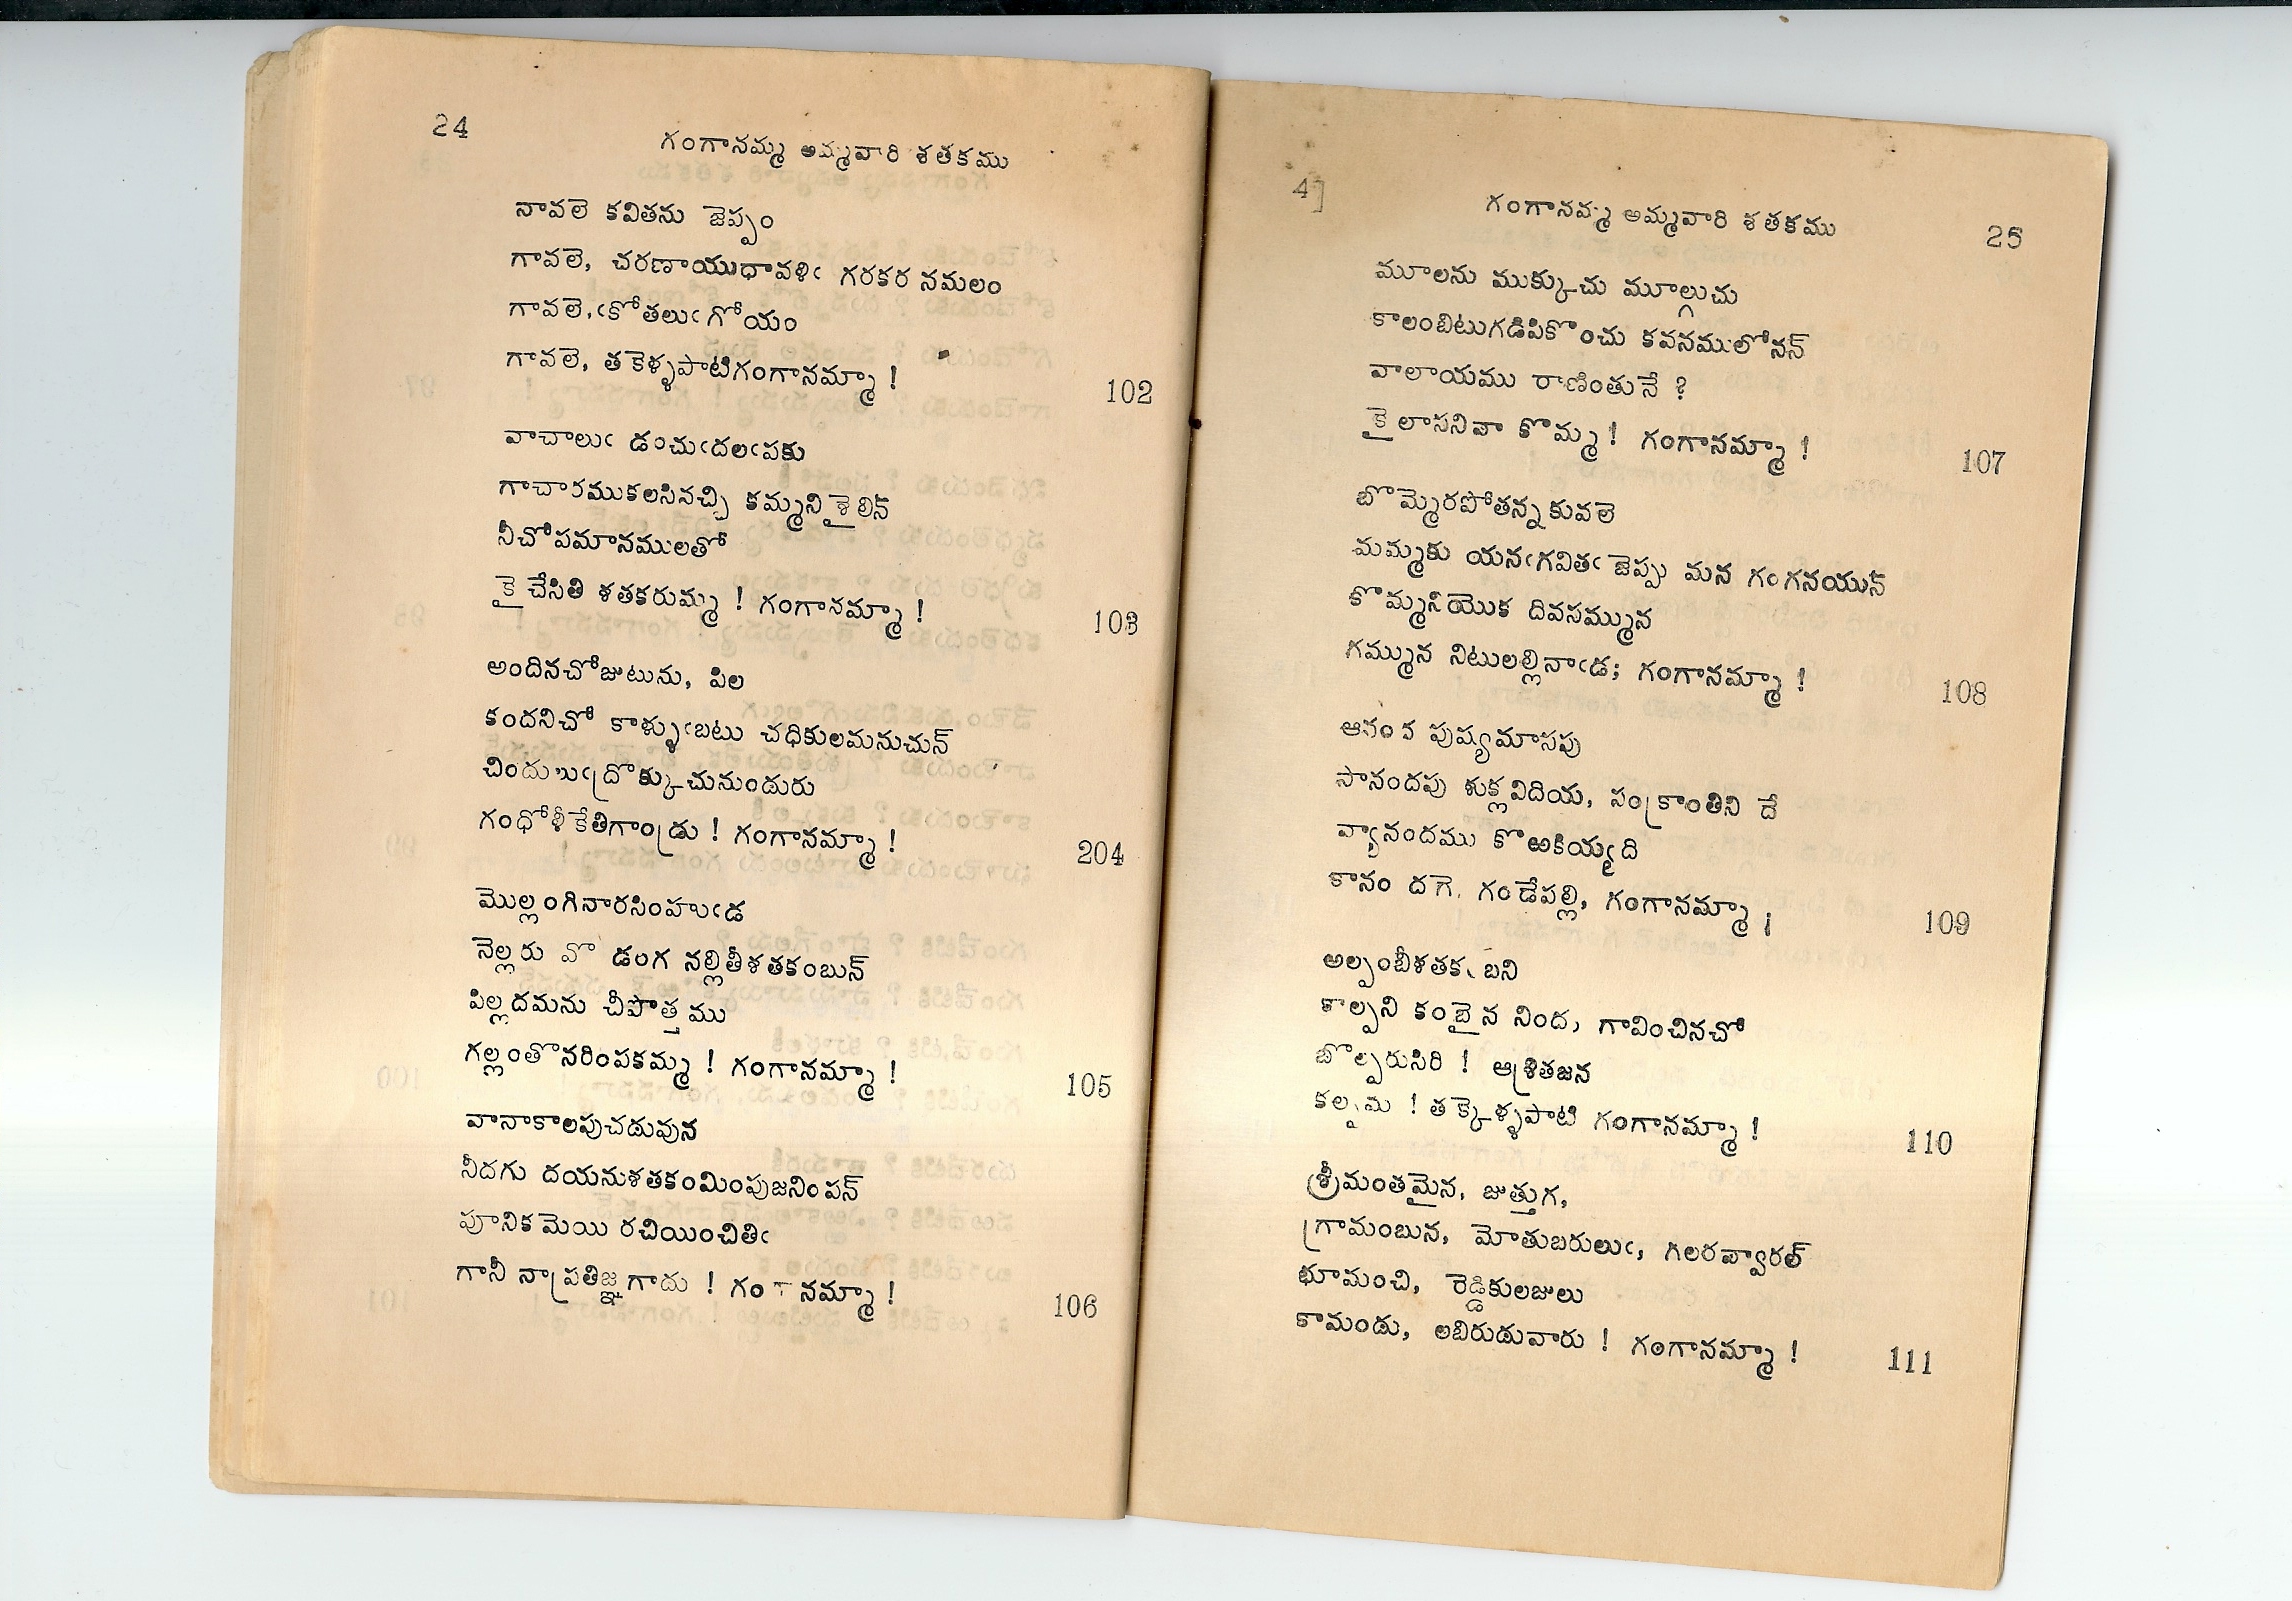 24
గంగానమ్మ అమ్మవారి శతకము
నావలె కవితను జెప్పం
గావలె, చరణాయుధావళిఁ గరకర నమలం
గావలె,ఁకోతలుఁగోయం
గావలె, తకెళ్ళపాటిగంగానమ్మా !
102
వాచాలుఁ డంచుఁదలఁపకు
గాచారముకలసినచ్చి కమ్మనిశైలిన్
నీచోపమానములతో
కైచేసితి శతకరుమ్ము ! గంగానమ్మా !
103
అందినచోజుటును, పిల
కందనిచో కాళ్ళుఁబటు చధికులమనుచున్
చిందులుఁద్రొక్కుచునుండురు
గంధోళీకేతిగాండ్రు ! గంగానమ్మా !
204
మొల్లంగినారసింహుఁడ
నెల్లరు వొ డంగ నల్లితీశతకంబున్
పిల్లదమను చీపొత్తము
గల్లంతొనరింపకమ్మ ! గంగానమ్మా !
105
వానాకాలపుచదువున
నీదగు దయనుశతకంమింపుజనింపన్
పూనికమెయి రచియించితిఁ
గానీ నాప్రతిజ్ఞగాదు ! గం నమ్మా !
106
4]
గంగానమ్మ అమ్మవారి శతకము
25
మూలను ముక్కుచు మూల్గుచు
కాలంబిటుగడిపికొంచు కవనములోనన్
వాలాయము రాణింతునే ?
కైలాసనివా కొమ్మ ! గంగానమ్మా !
107
బొమ్మెరపోతన్నకువలె
మమ్మకు యనఁగవితఁ జెప్పు మన గంగనయున్
కొమ్మనియొక దివసమ్మున
గమ్మున నిటులల్లినాఁడ; గంగానమ్మా !
108
పుష్యమాసపు
సానందపు శుక్లవిదియ, సంక్రాంతిని దే
వ్యానందము కొఱకియ్యది
కానం దగె. గండేపల్లి, గంగానమ్మా ¡
109
అల్పంబీశతక బని
కాల్పని కంబైన నింద, గావించినచో
బొల్పరుసిరి ! ఆశ్రితజన
! తక్కెళ్ళపాటి గంగానమ్మా !
110
శ్రీమంతమైన, జుత్తుగ,
గ్రామంబున, మోతుబరులుఁ, గలరవ్వారల్
భూమంచి, రెడ్డికులజులు
కామండు, లబిరుదువారు ! గంగానమ్మా !
111